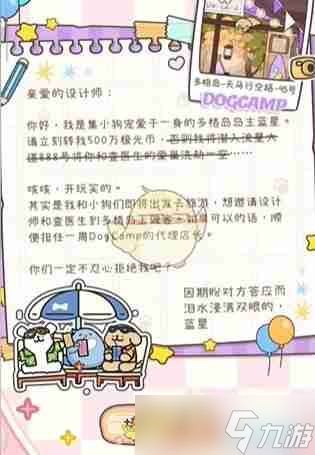 多格岛-天马行空路-95号
DOGCAMP
亲爱的设计师：
你好，我是集小狗宠爱于一身的多格岛岛主蓝星。
请立刻转我500万极光币，否则我将潜入流星大
道888号将你和查医生的
咳咳，开玩笑的。
其实是我和小狗们即将出发去旅游，想邀请设计
师和查医生到多格岛上做客，如果可以的话，顺
便担任一周DogCamp的代理店长。
你们一定不忍心拒绝我吧？
因期盼对方答应而
泪水浸满双眼的，
蓝星
九游